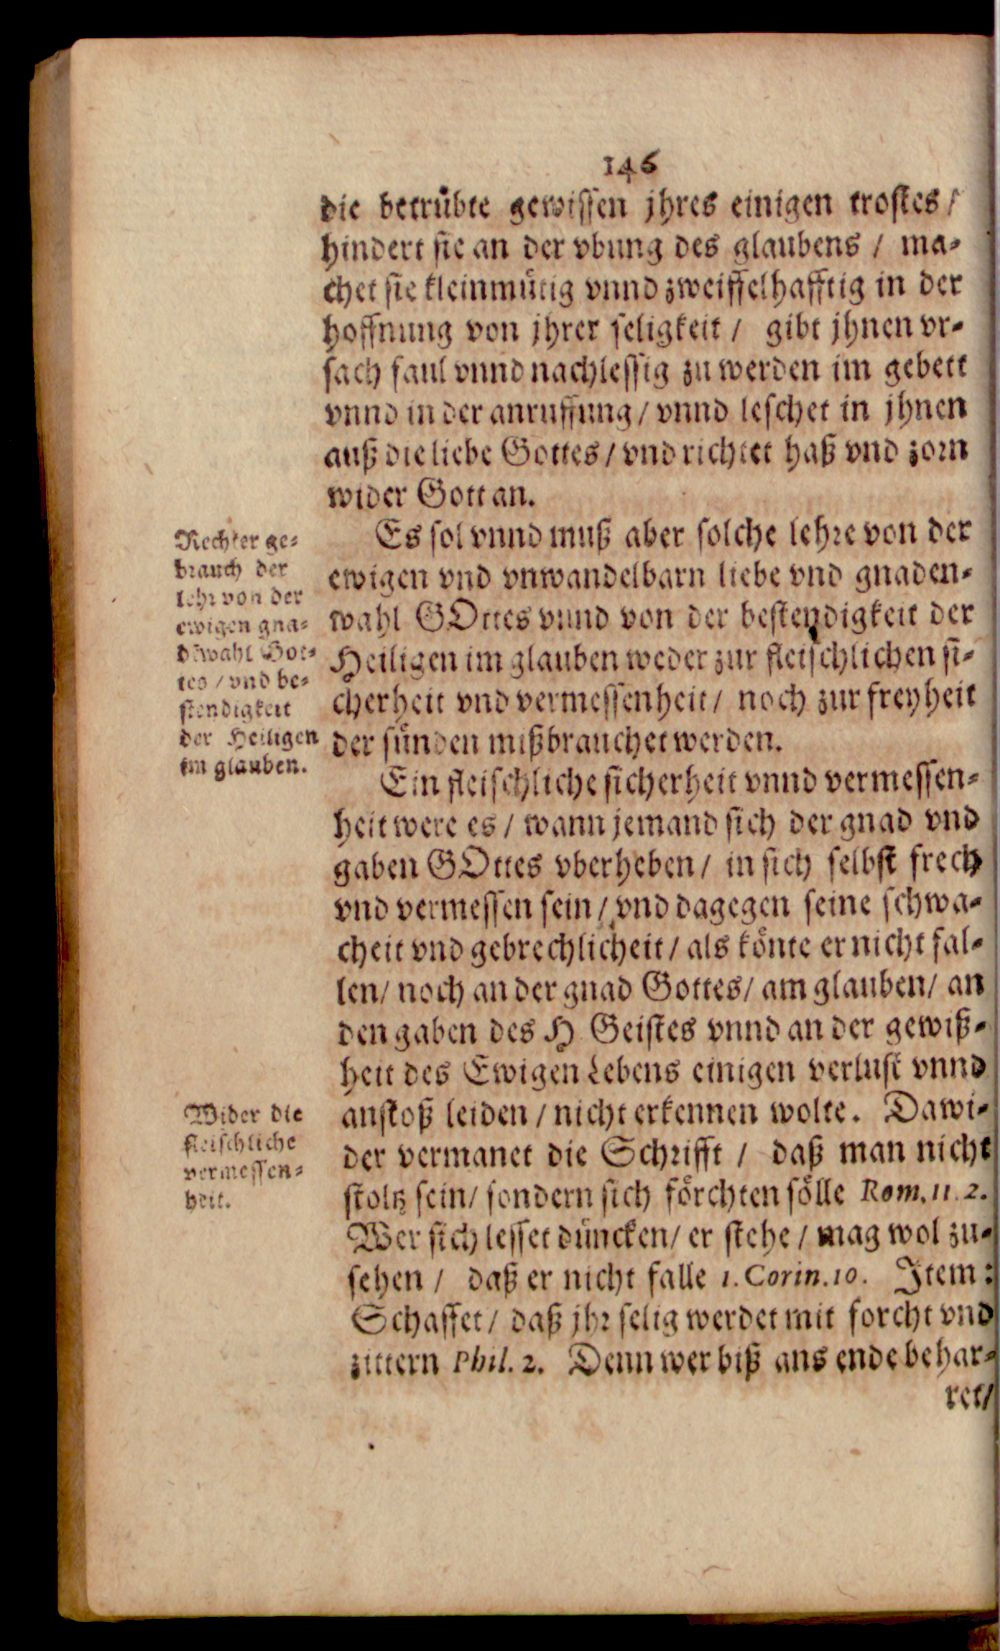 146
die betrübte gewissen jhres einigen trostes /
hindert sie an der vbung des glaubens / ma-
chet sie kleinmütig vnnd zweiffelhafftig in der
hoffnung von jhrer seligkeit / gibt jhnen vr-
sach faul vnnd nachlessig zu werden im gebett
vnnd in der anruffung / vnnd leschet in jhnen
auß die liebe Gottes / vnd richtet haß vnd zorn
wider Gott an.
Es sol vnnd muß aber solche lehre von der
ewigen vnd vnwandelbarn liebe vnd gnaden-
wahl GOttes vnnd von der bestendigkeit der
Heiligen im glauben weder zur fleischlichen si-
cherheit vnd vermessenheit / noch zur freyheit
der sünden mißbrauchet werden.
Rechter ge-
brauch der
lehr von der
ewigen gna-
dẽwahl Got-
tes / vnd be-
stendigkeit
der Heiligen
im glauben.
Ein fleischliche sicherheit vnnd vermessen-
heit were es / wann jemand sich der gnad vnd
gaben GOttes vberheben / in sich selbst frech
vnd vermessen sein / vnd dagegen seine schwa-
cheit vnd gebrechlicheit / als könte er nicht fal-
len / noch an der gnad Gottes / am glauben / an
den gaben des H Geistes vnnd an der gewiß-
heit des Ewigen Lebens einigen verlust vnnd
anstoß leiden / nicht erkennen wolte. Dawi-
der vermanet die Schrifft / daß man nicht
stoltz sein / sondern sich förchten sölle Rom. 11. 2.
Wer sich lesset düncken / er stehe / mag wol zu-
sehen / daß er nicht falle 1. Corin. 10. Item:
Schaffet / daß jhr selig werdet mit forcht vnd
zittern Phil. 2. Denn wer biß ans ende behar-
ret /
Wider die
fleischliche
vermessen-
heit.